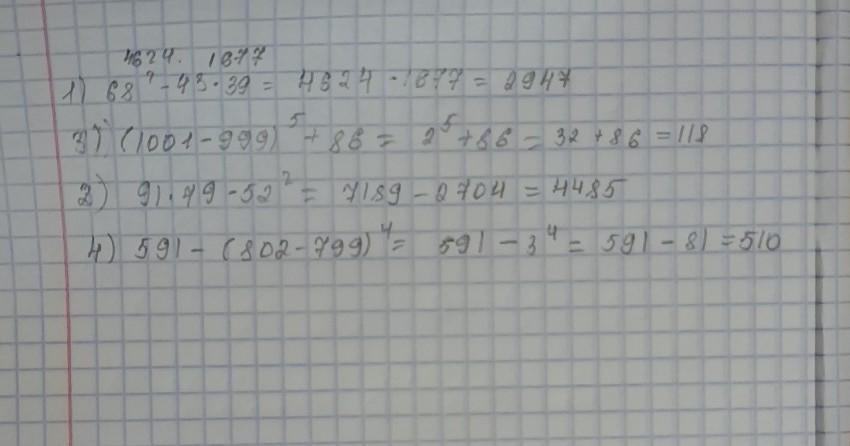 4624. 1677
1) 68² - 43·39 = 4624 - 1677 = 2947
3) (1001 - 999)⁵ + 86 = 2⁵ + 86 = 32 + 86 = 118
2) 91·79 - 52² = 7189 - 2704 = 4485
4) 591 - (802 - 799)⁴ = 591 - 3⁴ = 591 - 81 = 510